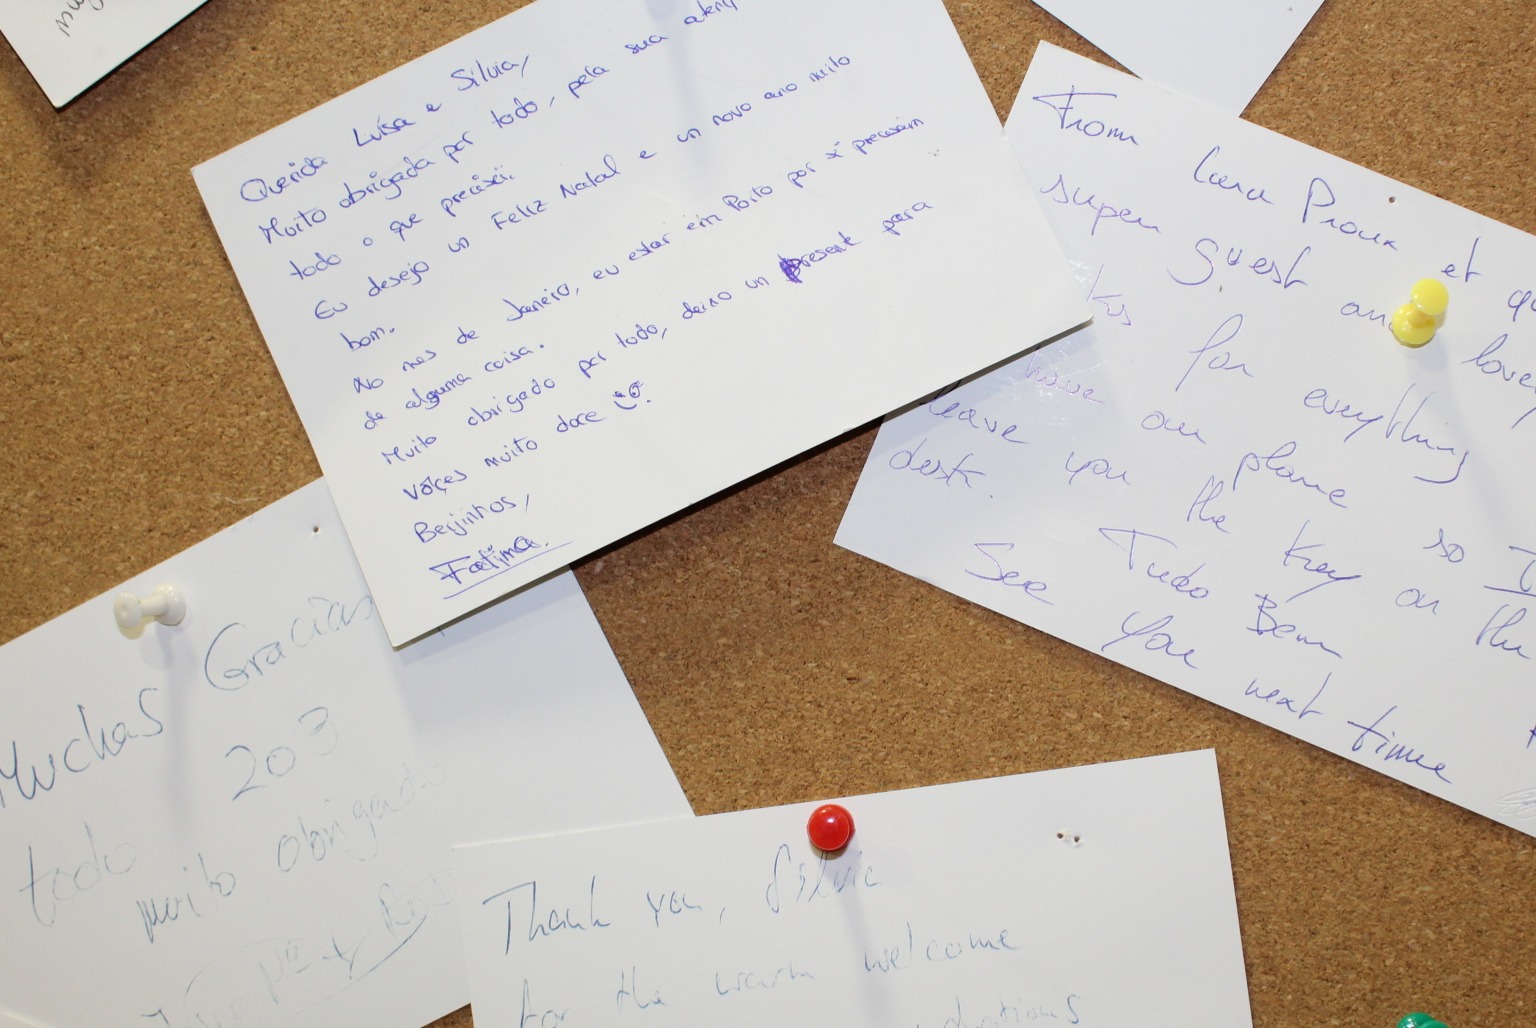 Querida Luísa e Silvia,
Muito obrigada por todo, pela sua
todo o que precisei.
Eu desejo un Feliz Natal e un novo ano muito
bom.
No mes de Janeiro, eu estar em Porto por si precisam
de alguma coisa.
Muito obrigado por todo, deixo un present para
vôçes muito doce
Beijinhos,
Fatima.
From Lara Proux et
super guest and lovely
for everything
have our plane so I
leave you the key on the
desk.
Tudo Bem
See you next time
Muchas Gracias
203
todo
muito obrigado
Thank you, Silvia
for the warm welcome